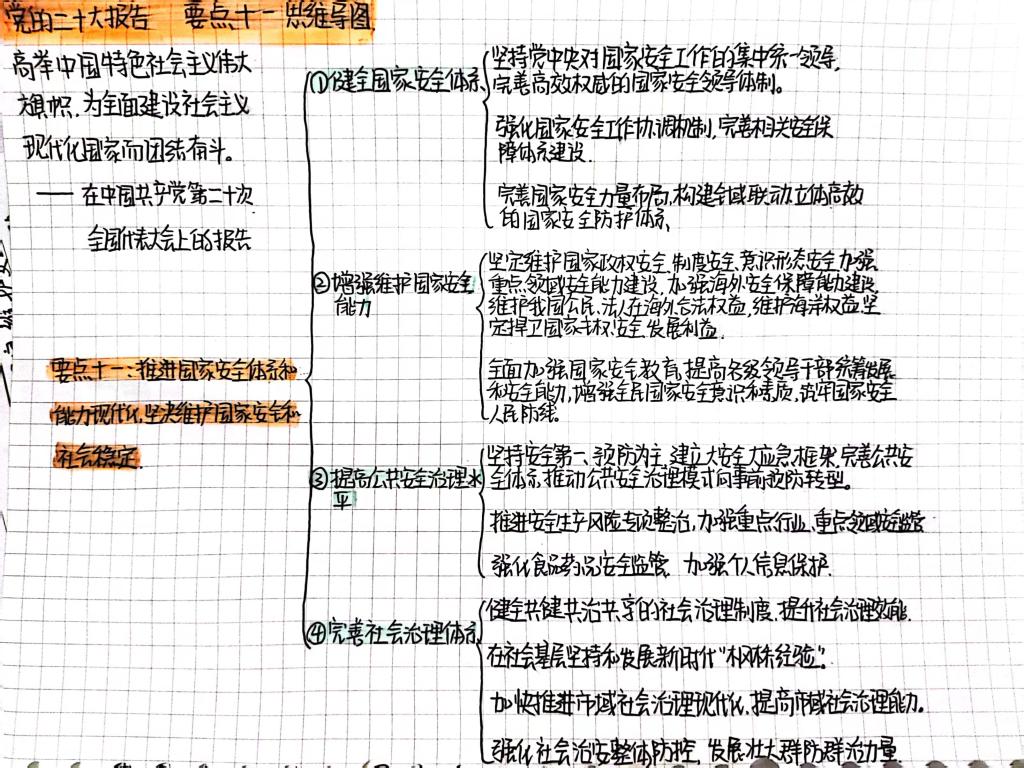 党的二十大报告 要点十一 思维导图
高举中国特色社会主义伟大
旗帜,为全面建设社会主义
现代化国家而团结奋斗。
—— 在中国共产党第二十次
全国代表大会上的报告
要点十一:推进国家安全体系和
能力现代化,坚决维护国家安全和
社会稳定.
①健全国家安全体系
坚持党中央对国家安全工作的集中统一领导,
完善高效权威的国家安全领导体制。
强化国家安全工作协调机制,完善相关安全保
障体系建设.
完善国家安全力量布局,构建全域联动、立体高效
的国家安全防护体系,
②增强维护国家安全
能力
坚定维护国家政权安全、制度安全、意识形态安全,加强
重点领域安全能力建设,加强海外安全保障能力建设,
维护我国公民、法人在海外合法权益,维护海洋权益,坚
定捍卫国家主权、安全、发展利益.
全面加强国家安全教育,提高各级领导干部统筹发展
和安全能力,增强全民国家安全意识和素质,筑牢国家安全
人民防线。
③提高公共安全治理水
平
坚持安全第一、预防为主,建立大安全大应急框架,完善公共安
全体系,推动公共安全治理模式向事前预防转型。
推进安全生产风险专项整治,加强重点行业、重点领域安全监管
强化食品药品安全监管,加强个人信息保护.
④完善社会治理体系
健全共建共治共享的社会治理制度,提升社会治理效能.
在社会基层坚持和发展新时代“枫桥经验”.
加快推进市域社会治理现代化,提高市域社会治理能力。
强化社会治安整体防控,发展壮大群防群治力量